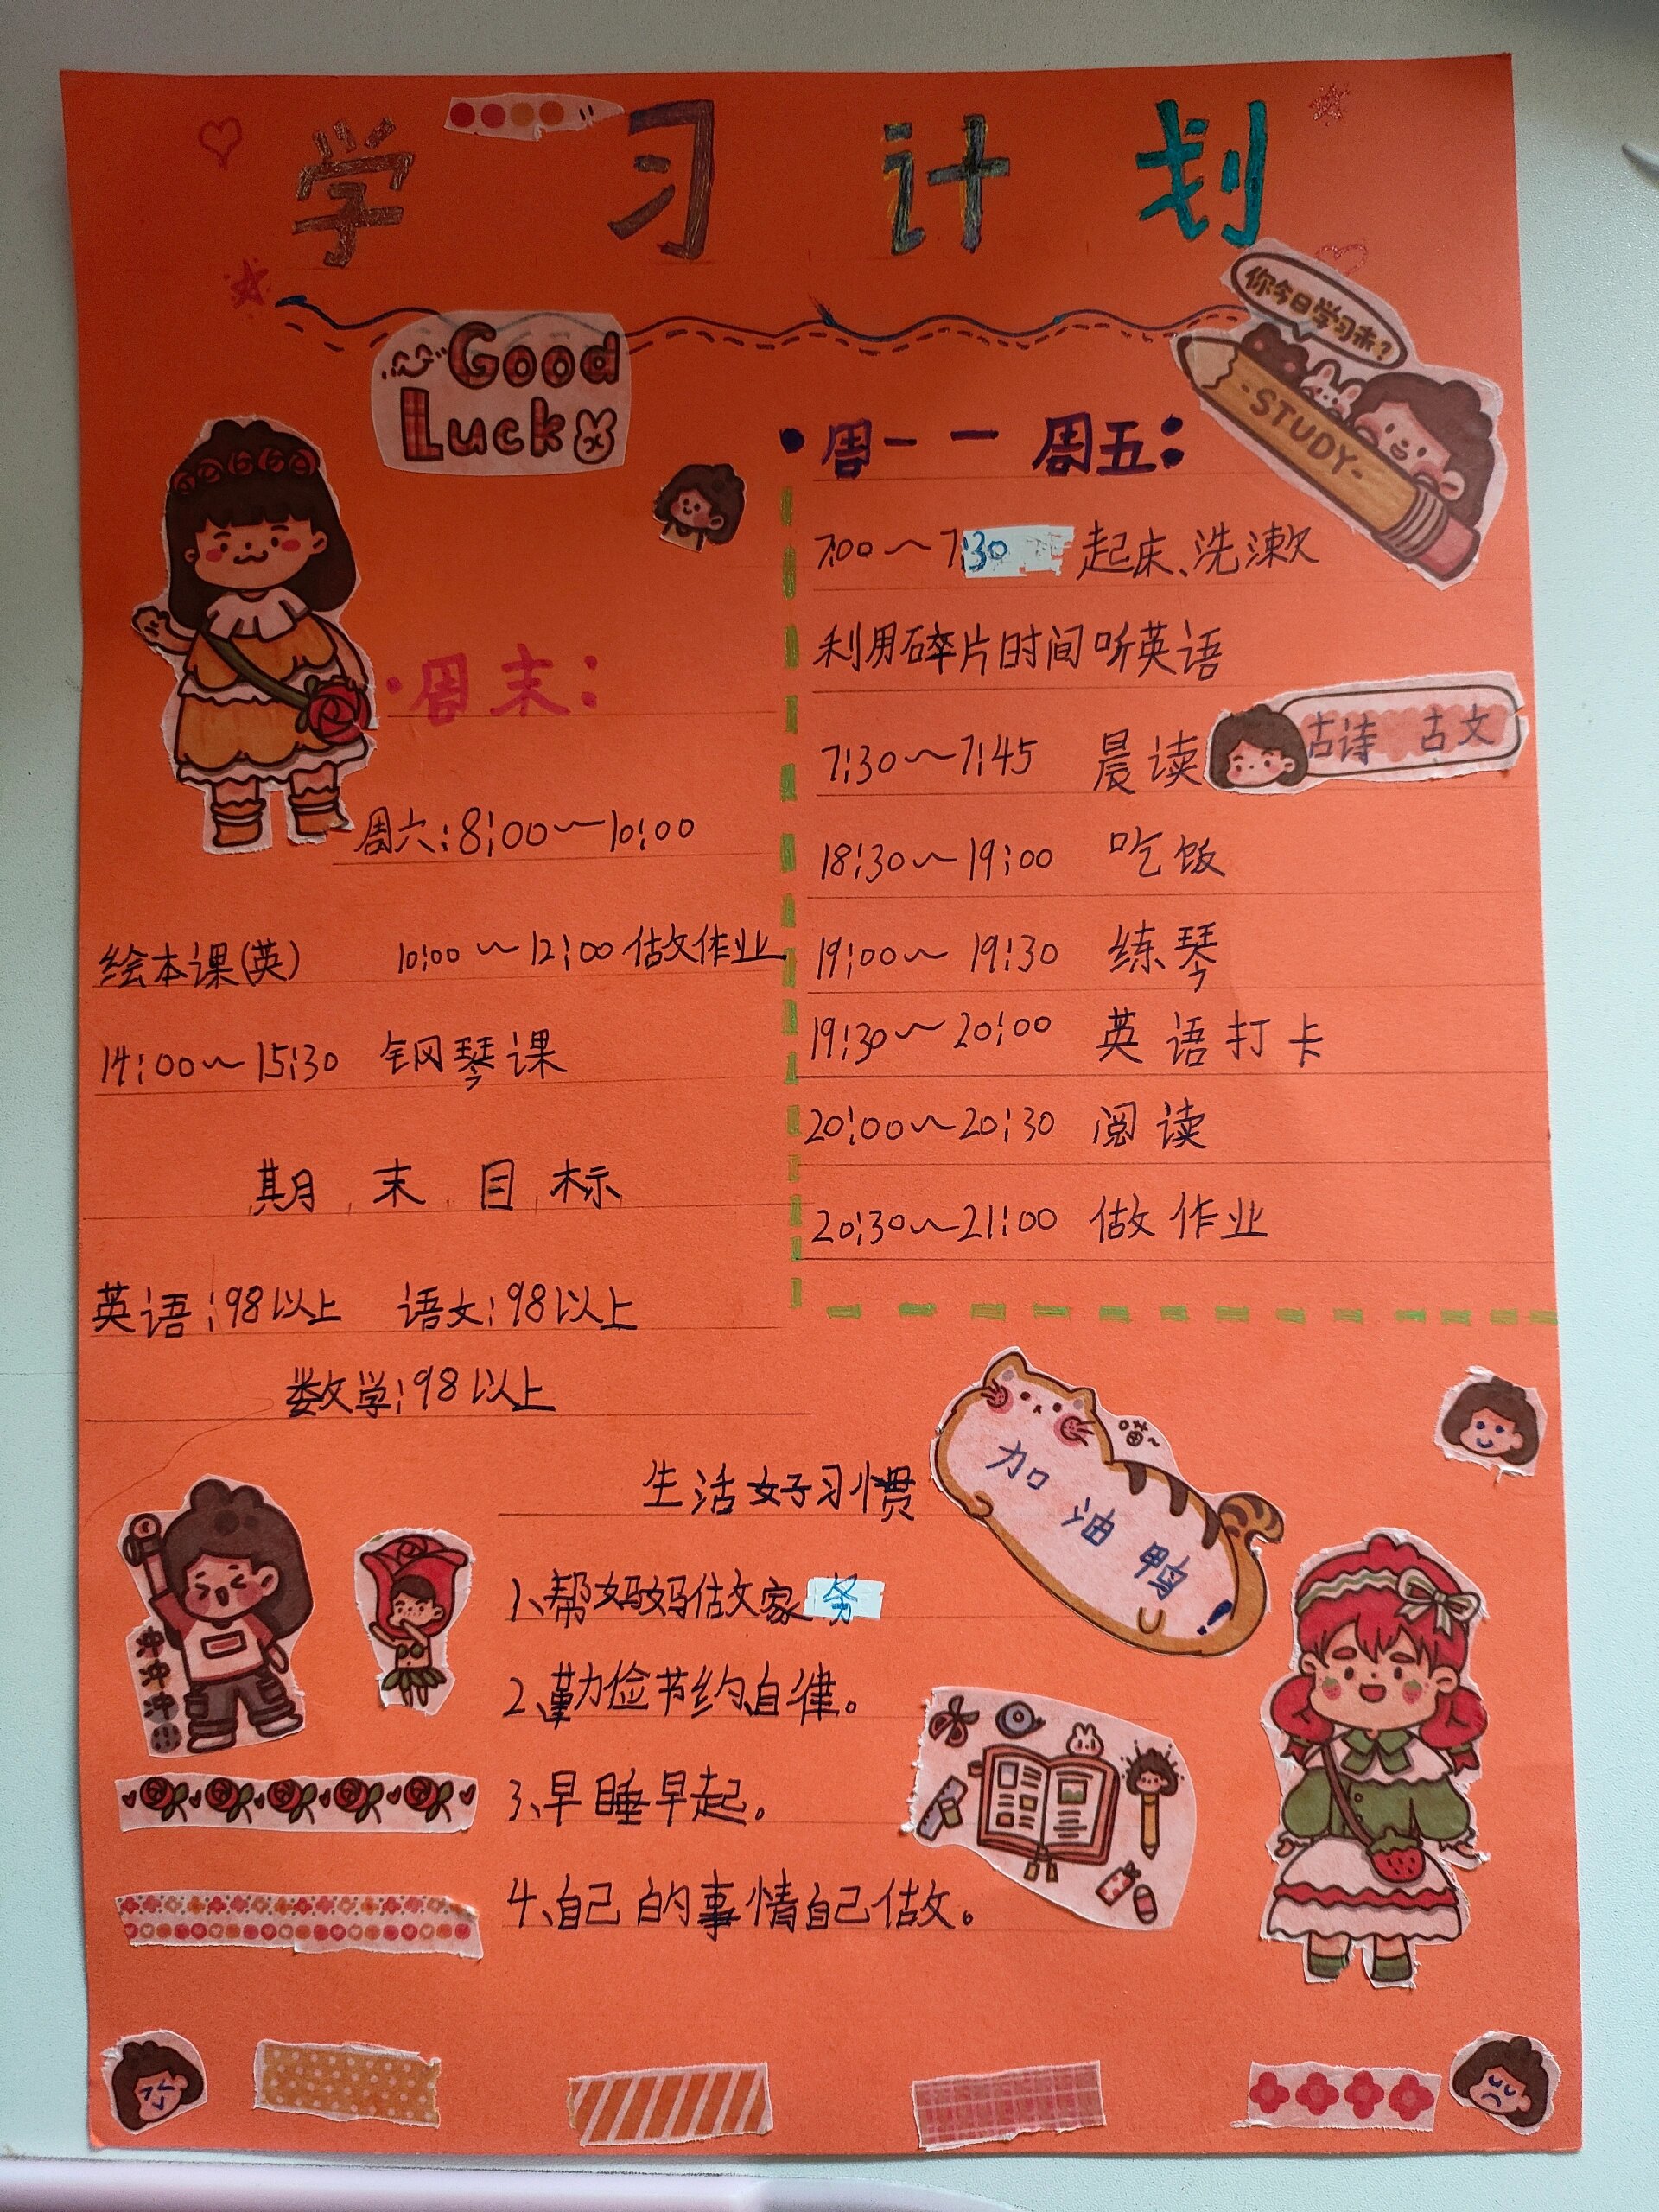 学习计划
Good
Luck
你今日学习未？
-STUDY-
周一一周五：
7:00～7:30 起床、洗漱
利用碎片时间听英语
7:30～7:45 晨读 古诗 古文
18:30～19:00 吃饭
19:00～19:30 练琴
19:30～20:00 英语打卡
20:00～20:30 阅读
20:30～21:00 做作业
周末：
周六：8:00～10:00
绘本课(英) 10:00～12:00做作业
14:00～15:30 钢琴课
期末目标
英语：98以上 语文：98以上
数学：98以上
喵~
加油鸭！
生活好习惯
1、帮妈妈做家务
2、勤俭节约自律。
3、早睡早起。
4、自己的事情自己做。
冲冲冲